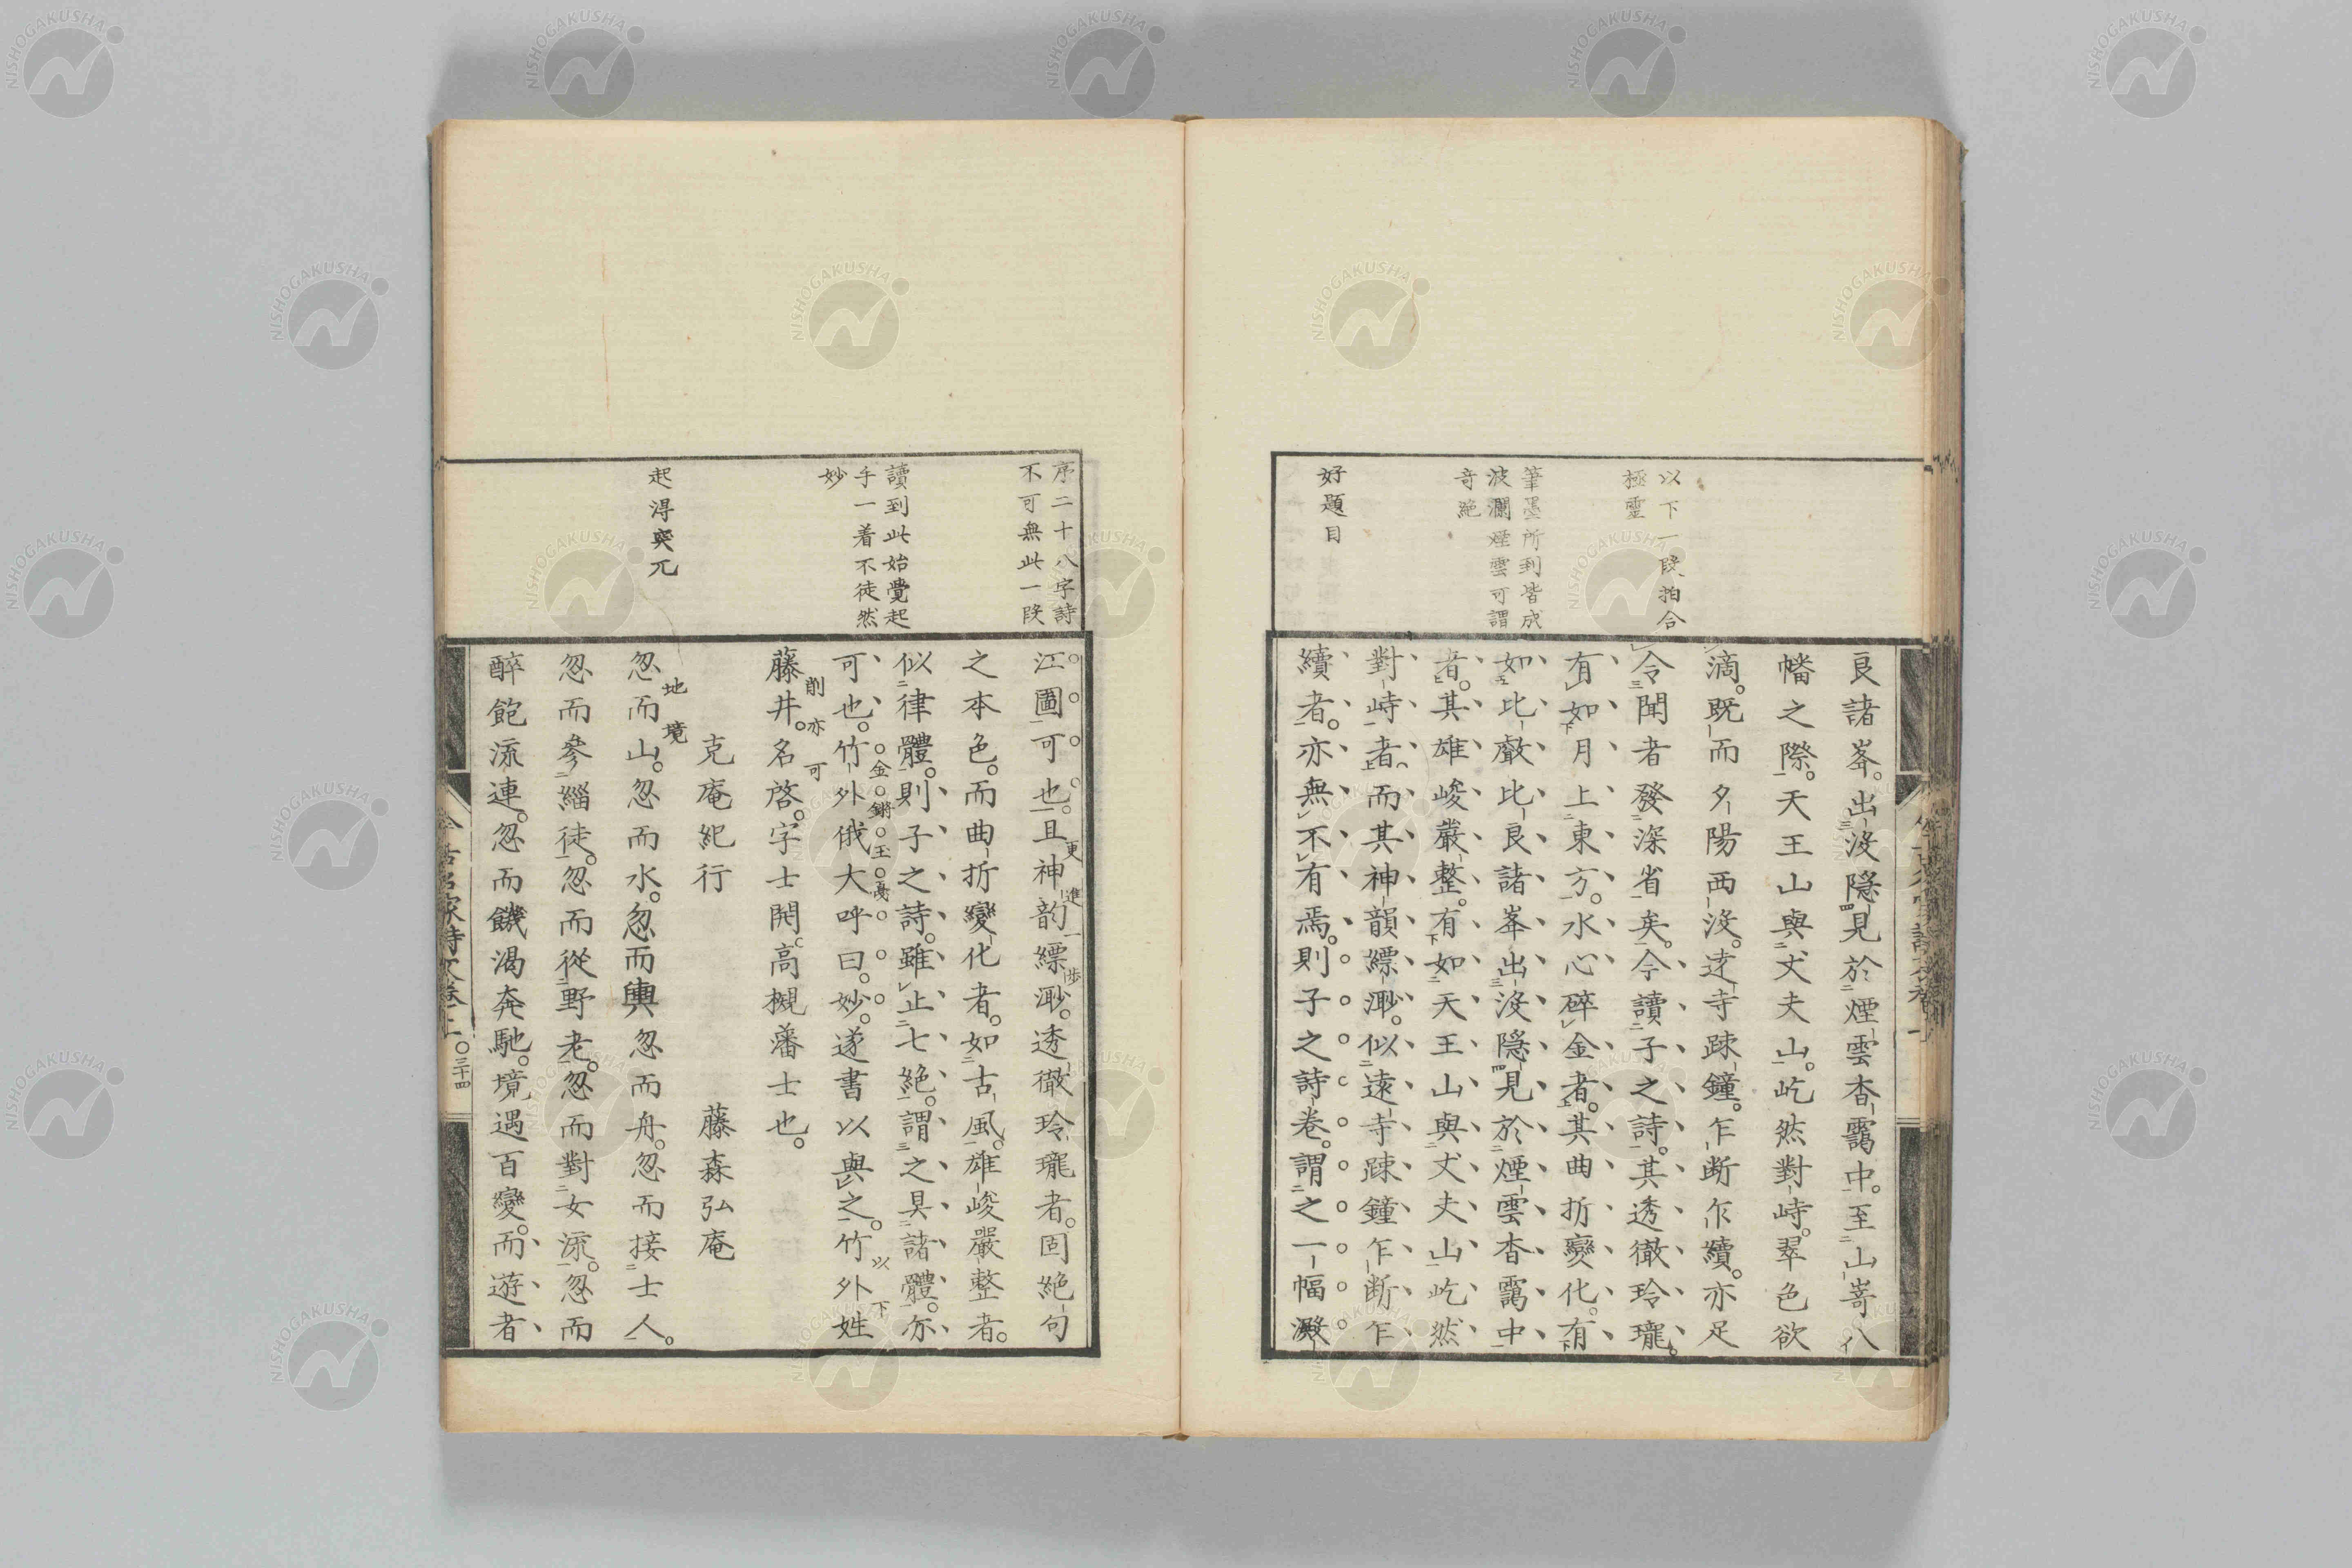 以下一段拍合
極靈
筆墨所到皆成
波瀾煙雲可謂
奇絕
好題目
良諸峯。出沒隱見於煙雲杳靄中。至山嵜八
幡之際。天王山與犬夫山。屹然對峙。翠色欲
滴。既而夕陽西沒。遠寺踈鐘。乍断乍續。亦足
令聞者發深省矣。今讀子之詩。其透徹玲瓏。
有如月上東方。水心碎金者。其曲折變化。有
如比叡比良諸峯出沒隱見於煙雲杳靄中
者。其雄峻嚴整。有如天王山與犬夫山屹然
對峙者。而其神韻縹渺。似遠寺踈鐘乍断乍
續者。亦無不有焉。則子之詩卷。謂之一幅澱
序二十八字詩
不可無此一段
讀到此始覺起
手一着不徒然
妙
起得突兀
江圖可也。且神韵縹渺。透徹玲瓏者。固絕句
更進一步
之本色。而曲折變化者。如古風。雄峻嚴整者。
似律體。則子之詩。雖止七絕。謂之具諸體。亦
可也。竹外俄大呼曰。妙。遂書以與之。竹外姓
金鏘玉戛
以下
藤井。名啓。字士開。高槻藩士也。
削亦可
克庵紀行 藤森弘庵
忽而山。忽而水。忽而輿忽而舟。忽而接士人。
地境
忽而參緇徒。忽而從野老。忽而對女流。忽而
醉飽流連。忽而饑渴奔馳。境遇百變。而遊者
三十四